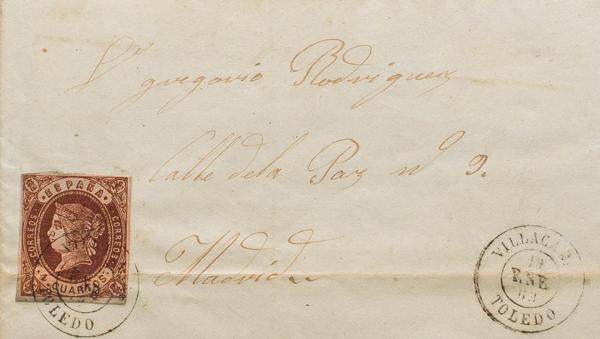 Sr gregorio Rodriguez
Calle dela Paz nº 9.
Madrid
ESPAÑA
CORREOS
CORREOS
4 CUARTOS
TOLEDO
VILLACAÑ.
19
ENE
63
TOLEDO